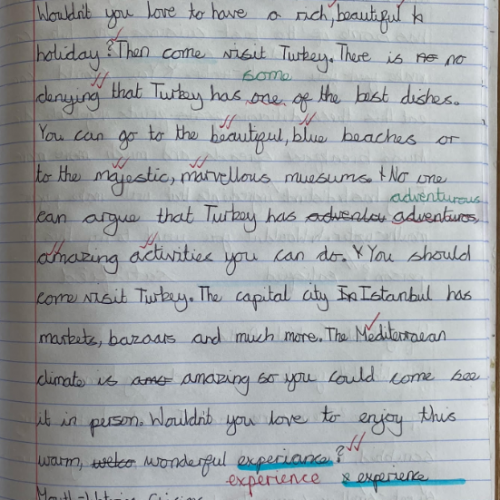 Wouldn't you love to have a rich, beautiful
holiday? Then come visit Turkey. There is no
some
denying that Turkey has one of the best dishes.
You can go to the beautiful, blue beaches or
to the majestic, marvellous muesums. No one
adventurous
can argue that Turkey has adventures
amazing activities you can do. You should
come visit Turkey. The capital city Istanbul has
markets, bazaars and much more. The Mediterraean
climate is amazing so you could come see
it in person. Wouldn't you love to enjoy this
warm, wonderful experiance?
experience x experience